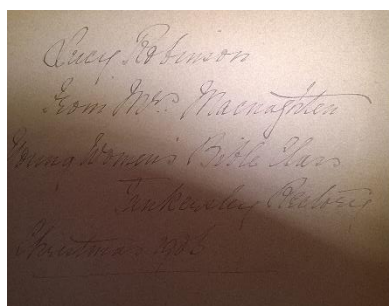 Lucy Robinson
From Mrs. Macnaghten
Young Women's Bible Class
Tankersley Rectory
Christmas